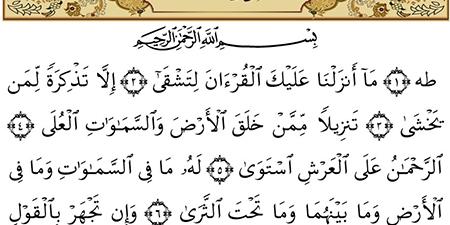 بِسْمِ ٱللَّهِ ٱلرَّحْمَٰنِ ٱلرَّحِيمِ
طه ﴿١﴾ مَآ أَنزَلْنَا عَلَيْكَ الْقُرْءَانَ لِتَشْقَىٰٓ ﴿٢﴾ إِلَّا تَذْكِرَةً لِّمَن
يَخْشَىٰ ﴿٣﴾ تَنزِيلًا مِّمَّنْ خَلَقَ الْأَرْضَ وَالسَّمَٰوَٰتِ الْعُلَى ﴿٤﴾
الرَّحْمَٰنُ عَلَى الْعَرْشِ اسْتَوَىٰ ﴿٥﴾ لَهُۥ مَا فِى السَّمَٰوَٰتِ وَمَا فِى
الْأَرْضِ وَمَا بَيْنَهُمَا وَمَا تَحْتَ الثَّرَىٰ ﴿٦﴾ وَإِن تَجْهَرْ بِالْقَوْلِ